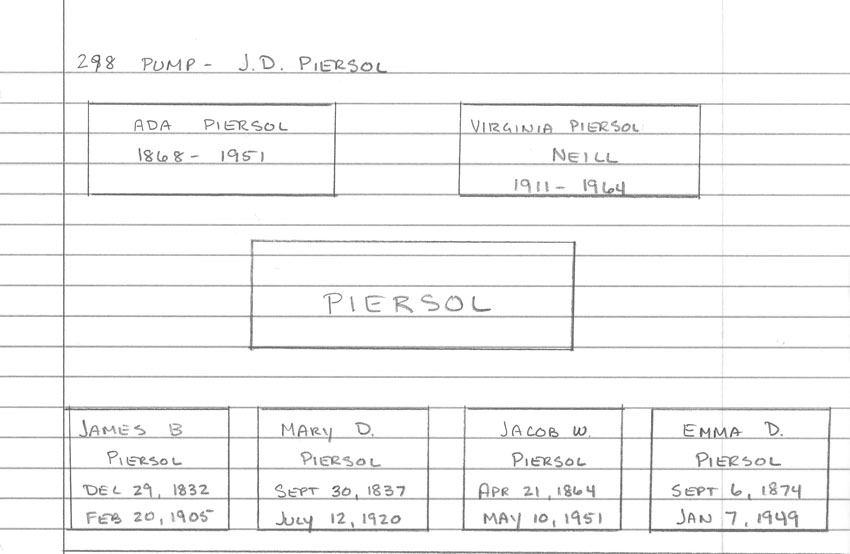 298 PUMP - J.D. PIERSOL
ADA PIERSOL
1868 - 1951
VIRGINIA PIERSOL
NEILL
1911 - 1964
PIERSOL
JAMES B
PIERSOL
DEC 29, 1832
FEB 20, 1905
MARY D.
PIERSOL
SEPT 30, 1837
JULY 12, 1920
JACOB W.
PIERSOL
APR 21, 1864
MAY 10, 1951
EMMA D.
PIERSOL
SEPT 6, 1874
JAN 7, 1949